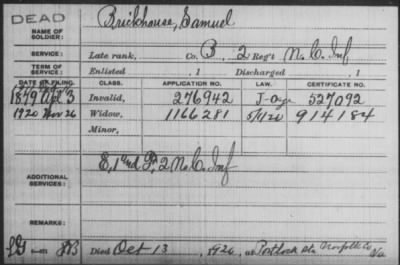 DEAD
NAME OF SOLDIER:
Brickhouse, Samuel
SERVICE:
Late rank, Co. B 2 Reg't N.C. Inf
TERM OF SERVICE:
Enlisted , 1 Discharged , 1
DATE OF FILING. CLASS. APPLICATION NO. LAW. CERTIFICATE NO.
1879 Apl 3 Invalid, 276942 527092
1920 Nov 26 Widow, 1166281 5/1/20 914184
Minor,
ADDITIONAL SERVICES:
E, 1 2 N.C. Inf
REMARKS:
Died Oct 13, 1920, at Portlock Sta Norfolk Co
Va